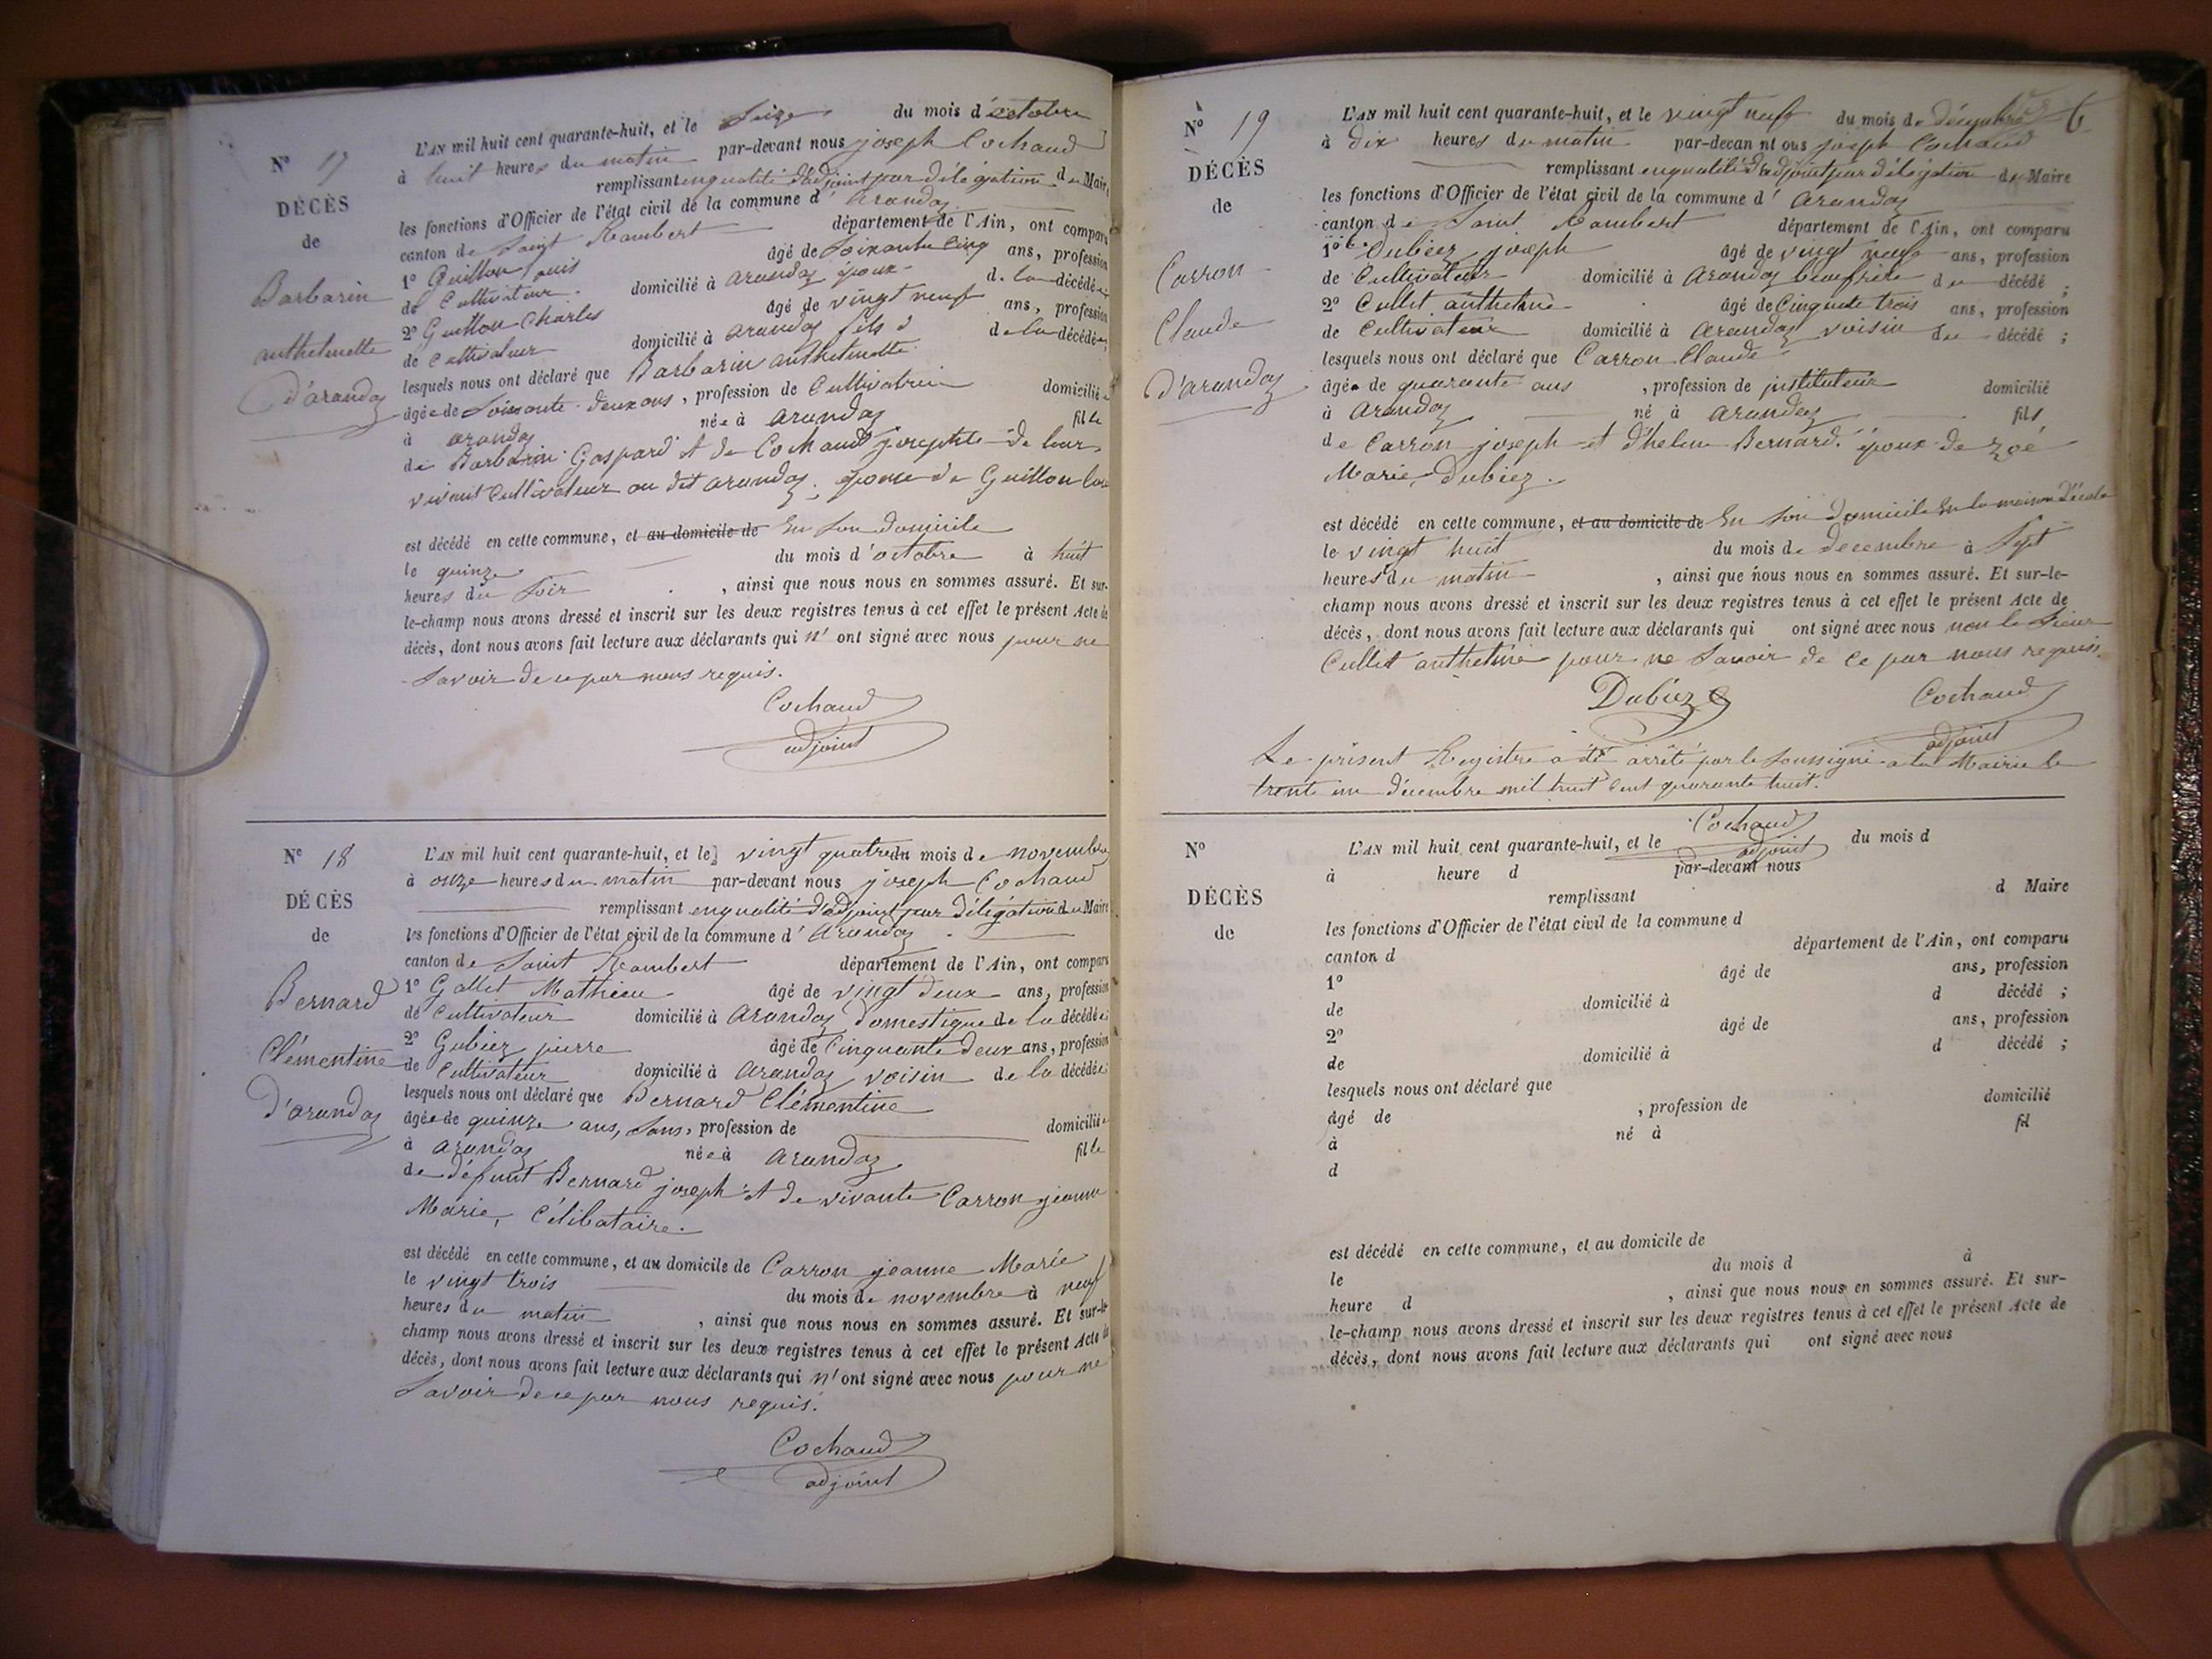 N° 17
DÉCÈS
de
Barbarin
anthelmette
D'arandas
L'AN mil huit cent quarante-huit, et le Seize du mois d'octobre
à huit heures du matin par-devant nous joseph Cochaud
remplissant en qualité d'adjoint par délégation du Maire
les fonctions d'Officier de l'état civil de la commune d'arandas
canton de Saint Rambert département de l'Ain, ont comparu
1° Guillon âgé de Soixante Cinq ans, profession
de Cultivateur domicilié à arandas époux de la décédée;
2° Guillon Charles âgé de vingt neuf ans, profession
de Cultivateur domicilié à arandas fils de la décédée;
lesquels nous ont déclaré que Barbarin anthelmette
âgée de Soixante deux ans, profession de Cultivatrice domiciliée
à arandas née à arandas fille
de Barbarin Gaspard et de Cochaud josephte de leur
vivant Cultivateur au dit arandas, épouse de Guillon
est décédé en cette commune, et au domicile de En Son domicile
le quinze du mois d'octobre à huit
heures du Soir, ainsi que nous nous en sommes assuré. Et sur-
le-champ nous avons dressé et inscrit sur les deux registres tenus à cet effet le présent Acte de
décès, dont nous avons fait lecture aux déclarants qui n'ont signé avec nous pour ne
Savoir de ce par nous requis.
Cochaud
adjoint
N° 18
DÉCÈS
de
Bernard
Clémentine
D'arandas
L'AN mil huit cent quarante-huit, et le vingt quatre du mois de novembre
à onze heures du matin par-devant nous joseph Cochaud
remplissant en qualité d'adjoint par délégation du Maire
les fonctions d'Officier de l'état civil de la commune d'arandas
canton de Saint Rambert département de l'Ain, ont comparu
1° Gallet Mathieu âgé de vingt deux ans, profession
de Cultivateur domicilié à arandas domestique de la décédée;
2° Gubiez pierre âgé de Cinquante deux ans, profession
de Cultivateur domicilié à arandas voisin de la décédée;
lesquels nous ont déclaré que Bernard Clémentine
âgée de quinze ans, Sans, profession de domiciliée
à arandas née à arandas fille
de défunt Bernard joseph et de vivante Carron jeanne
Marie, Célibataire.
est décédé en cette commune, et au domicile de Carron jeanne Marie
le vingt trois du mois de novembre à neuf
heures du matin, ainsi que nous nous en sommes assuré. Et sur-le-
champ nous avons dressé et inscrit sur les deux registres tenus à cet effet le présent Acte de
décès, dont nous avons fait lecture aux déclarants qui n'ont signé avec nous pour ne
Savoir de ce par nous requis.
Cochaud
adjoint
6
N° 19
DÉCÈS
de
Carron
Claude
D'arandas
L'AN mil huit cent quarante-huit, et le vingt neuf du mois de décembre
à dix heures du matin par-devan nt ous joseph Cochaud
remplissant en qualité d'adjoint par délégation du Maire
les fonctions d'Officier de l'état civil de la commune d'arandas
canton de Saint Rambert département de l'Ain, ont comparu
1° Dubiez joseph âgé de vingt neuf ans, profession
de Cultivateur domicilié à arandas beaufrère du décédé;
2° Cullet anthelme âgé de Cinquante trois ans, profession
de Cultivateur domicilié à arandas voisin du décédé;
lesquels nous ont déclaré que Carron Claude
âgé de quarante ans, profession de jnstituteur domicilié
à arandas né à arandas fils
de Carron joseph et d'helene Bernard. époux de Zoé
Marie Dubiez.
est décédé en cette commune, et au domicile de En Son domicile En la maison d'école
le vingt huit du mois de decembre à Sept
heures du matin, ainsi que nous nous en sommes assuré. Et sur-le-
champ nous avons dressé et inscrit sur les deux registres tenus à cet effet le présent Acte de
décès, dont nous avons fait lecture aux déclarants qui ont signé avec nous non le Sieur
Cullet anthelme pour ne Savoir de ce par nous requis.
Dubiez Cochaud
adjoint
Le présent Registre a été arrêté par le Soussigné a la Mairie le
trente un décembre mil huit Cent quarante huit.
Cochaud
adjoint
N°
DÉCÈS
de
L'AN mil huit cent quarante-huit, et le du mois d
à heure d par-devant nous
remplissant d Maire
les fonctions d'Officier de l'état civil de la commune d
canton d département de l'Ain, ont comparu
1° âgé de ans, profession
de domicilié à d décédé;
2° âgé de ans, profession
de domicilié à d décédé;
lesquels nous ont déclaré que
âgé de, profession de domicilié
à né à fil
d
est décédé en cette commune, et au domicile de
le du mois d à
heure d, ainsi que nous nous en sommes assuré. Et sur-
le-champ nous avons dressé et inscrit sur les deux registres tenus à cet effet le présent Acte de
décès, dont nous avons fait lecture aux déclarants qui ont signé avec nous